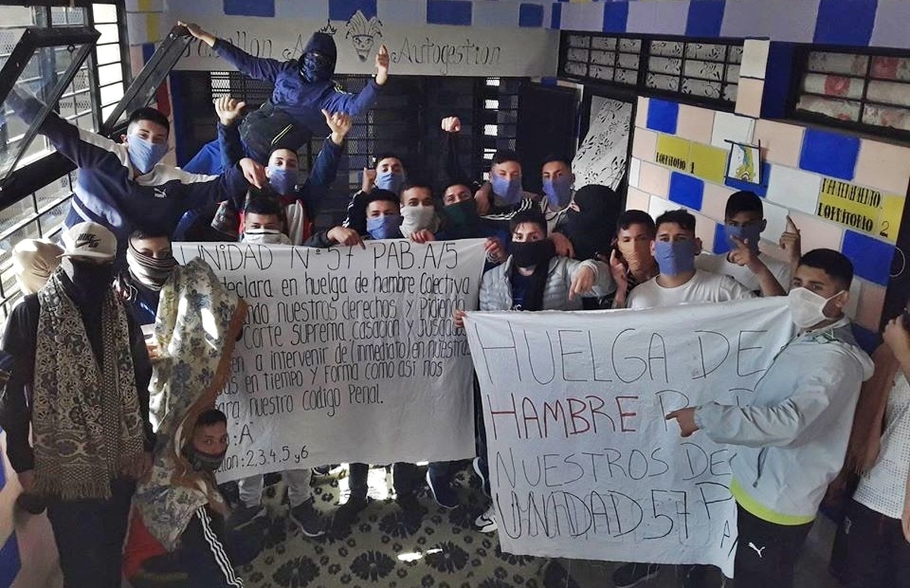 Pabellon A Autogestion
DORMITORIO 1
DORMITORIO 2
UNIDAD Nº 57 PAB. A/5
declara en huelga de hambre Colectiva
nuestros derechos y Pidiendo
Corte suprema, casación y Jusgados
a intervenir de (inmediato) en nuestras
en tiempo y forma como asi nos
nuestro codigo Penal.
: A
: 2,3,4,5 y 6
HUELGA DE
HAMBRE
NUESTROS
UNADAD 57